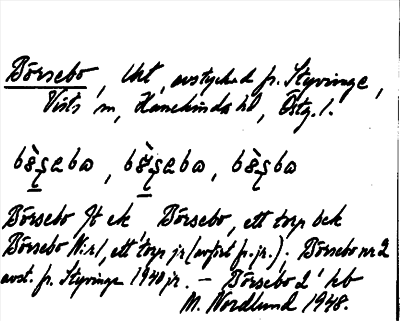 Börsebo, lht, avstyckad fr. Styvinge,
Vists sn, Hanekinds hd, Östg. l.
Börsebo Jt ek, Börsebo, ett torp bek
Börsebo Nr 1, ett torp jr (avfört fr. jr.). Börsebo nr 2
avst. fr. Styvinge 1940 jr. – Börsebo 2 kb
M. Nordlund 1948.